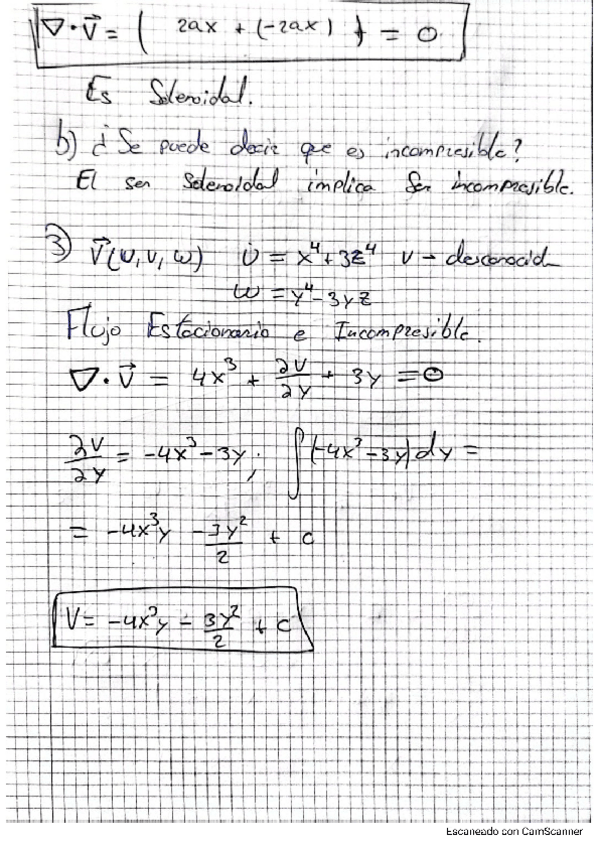 ∇·V⃗ = ( 2ax + (-2ax) ) = 0
Es Solenoidal.
b) ¿Se puede decir que es incompresible?
El ser Solenoidal implica Ser incompresible.
3) V⃗(u, v, w) u = x⁴ + 3z⁴ v → desconocid
w = y⁴ - 3yz
Flujo Estacionario e Incompresible.
∇·V⃗ = 4x³ + ∂v/∂y + 3y = 0
∂v/∂y = -4x³ - 3y ; ∫(-4x³ - 3y) dy =
= -4x³y - 3y²/2 + c
V = -4x³y - 3y²/2 + c
Escaneado con CamScanner